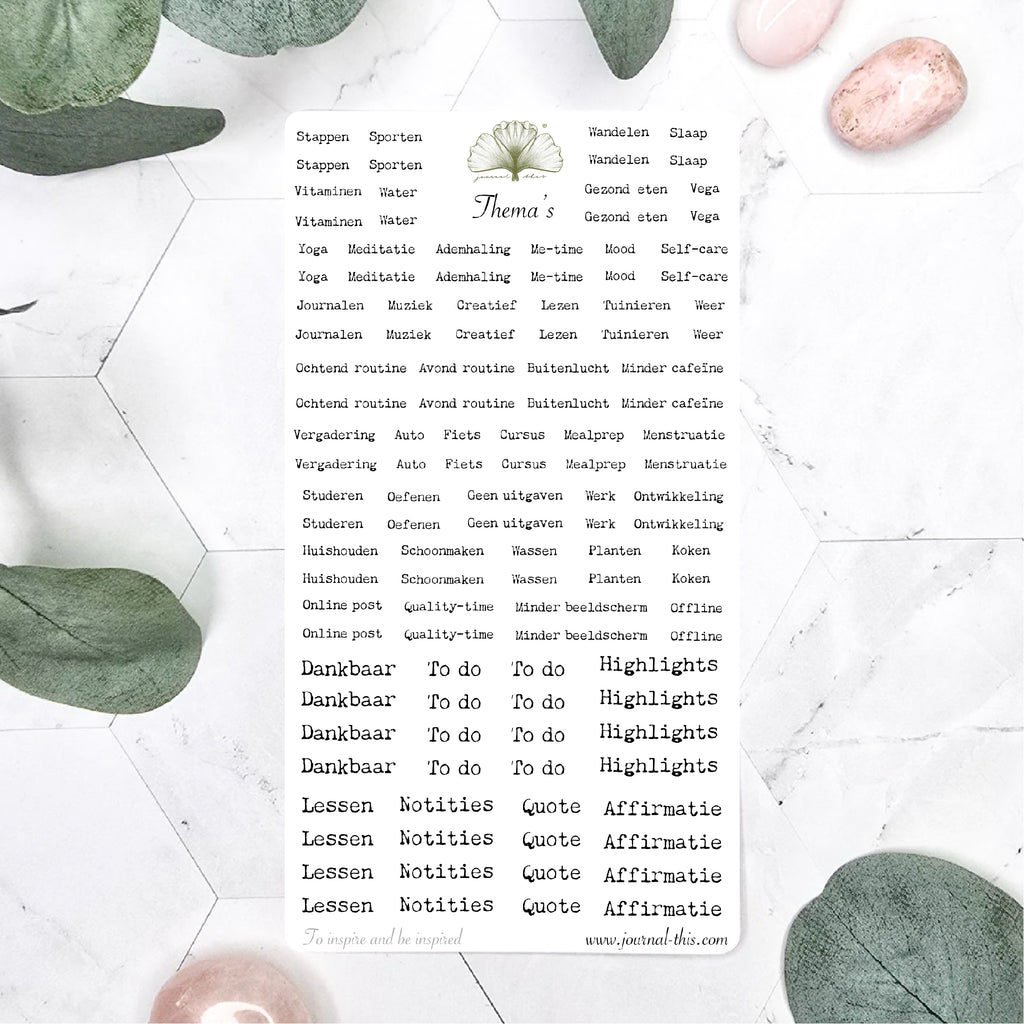 Stappen Sporten Wandelen Slaap
Stappen Sporten Wandelen Slaap
journal this
Vitaminen Water Gezond eten Vega
Thema's
Vitaminen Water Gezond eten Vega
Yoga Meditatie Ademhaling Me-time Mood Self-care
Yoga Meditatie Ademhaling Me-time Mood Self-care
Journalen Muziek Creatief Lezen Tuinieren Weer
Journalen Muziek Creatief Lezen Tuinieren Weer
Ochtend routine Avond routine Buitenlucht Minder cafeïne
Ochtend routine Avond routine Buitenlucht Minder cafeïne
Vergadering Auto Fiets Cursus Mealprep Menstruatie
Vergadering Auto Fiets Cursus Mealprep Menstruatie
Studeren Oefenen Geen uitgaven Werk Ontwikkeling
Studeren Oefenen Geen uitgaven Werk Ontwikkeling
Huishouden Schoonmaken Wassen Planten Koken
Huishouden Schoonmaken Wassen Planten Koken
Online post Quality-time Minder beeldscherm Offline
Online post Quality-time Minder beeldscherm Offline
Dankbaar To do To do Highlights
Dankbaar To do To do Highlights
Dankbaar To do To do Highlights
Dankbaar To do To do Highlights
Lessen Notities Quote Affirmatie
Lessen Notities Quote Affirmatie
Lessen Notities Quote Affirmatie
Lessen Notities Quote Affirmatie
To inspire and be inspired www.journal-this.com